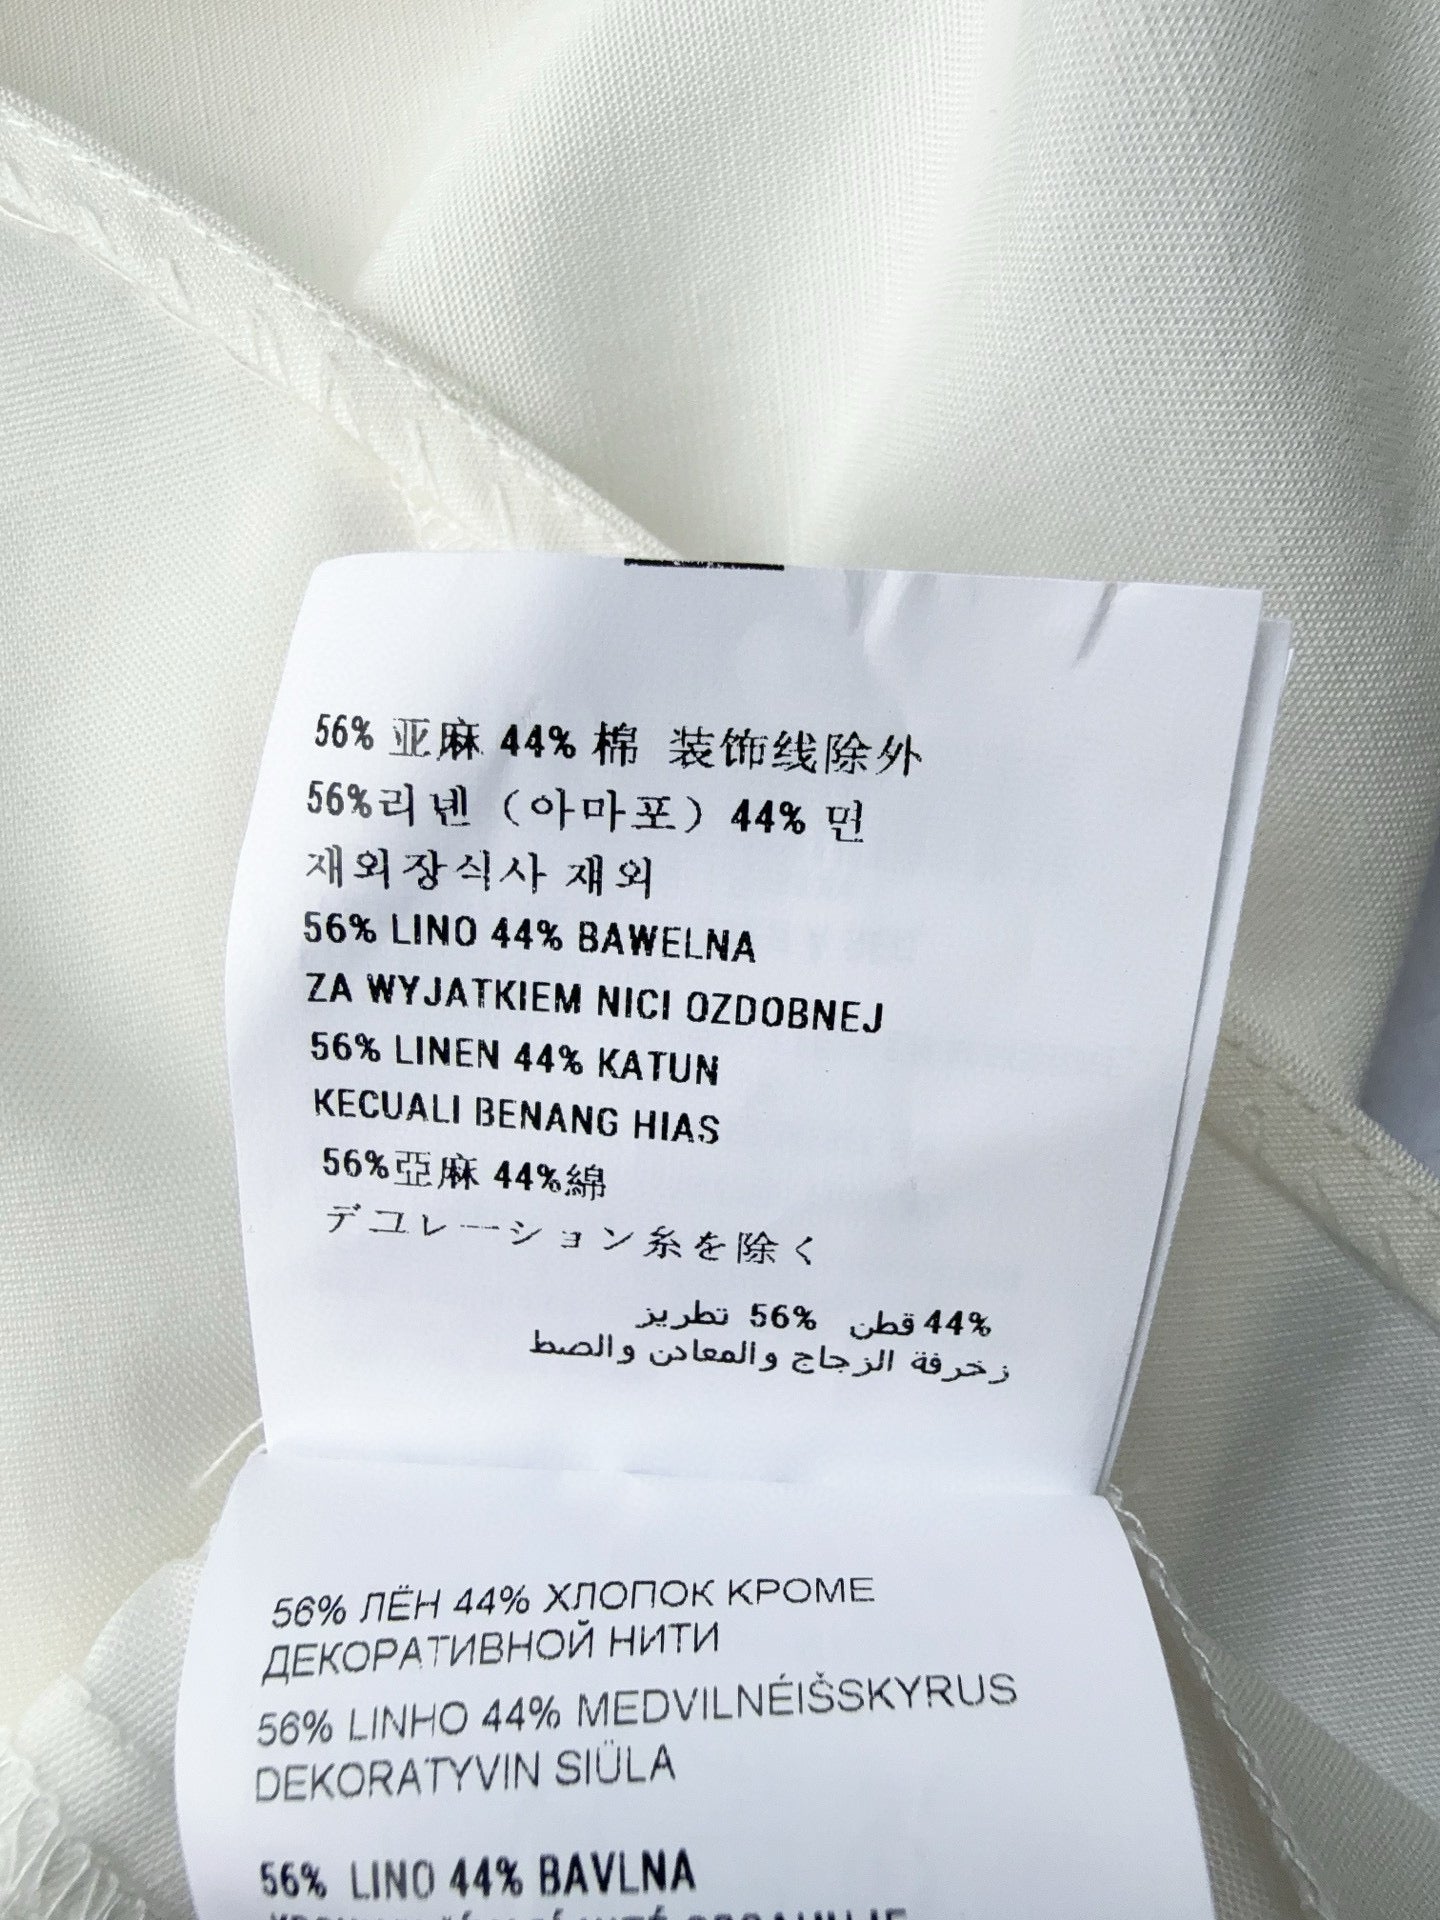 56% 亚麻 44% 棉 装饰线除外
56%리넨（아마포）44% 면
재외장식사 재외
56% LINO 44% BAWELNA
ZA WYJATKIEM NICI OZDOBNEJ
56% LINEN 44% KATUN
KECUALI BENANG HIAS
56%亞麻 44%綿
デコレーション糸を除く
44% قطن 56% تطريز
زخرفة الزجاج والمعادن والصط
56% ЛЁН 44% ХЛОПОК КРОМЕ
ДЕКОРАТИВНОЙ НИТИ
56% LINHO 44% MEDVILNÉIŠSKYRUS
DEKORATYVIN SIÜLA
56% LINO 44% BAVLNA